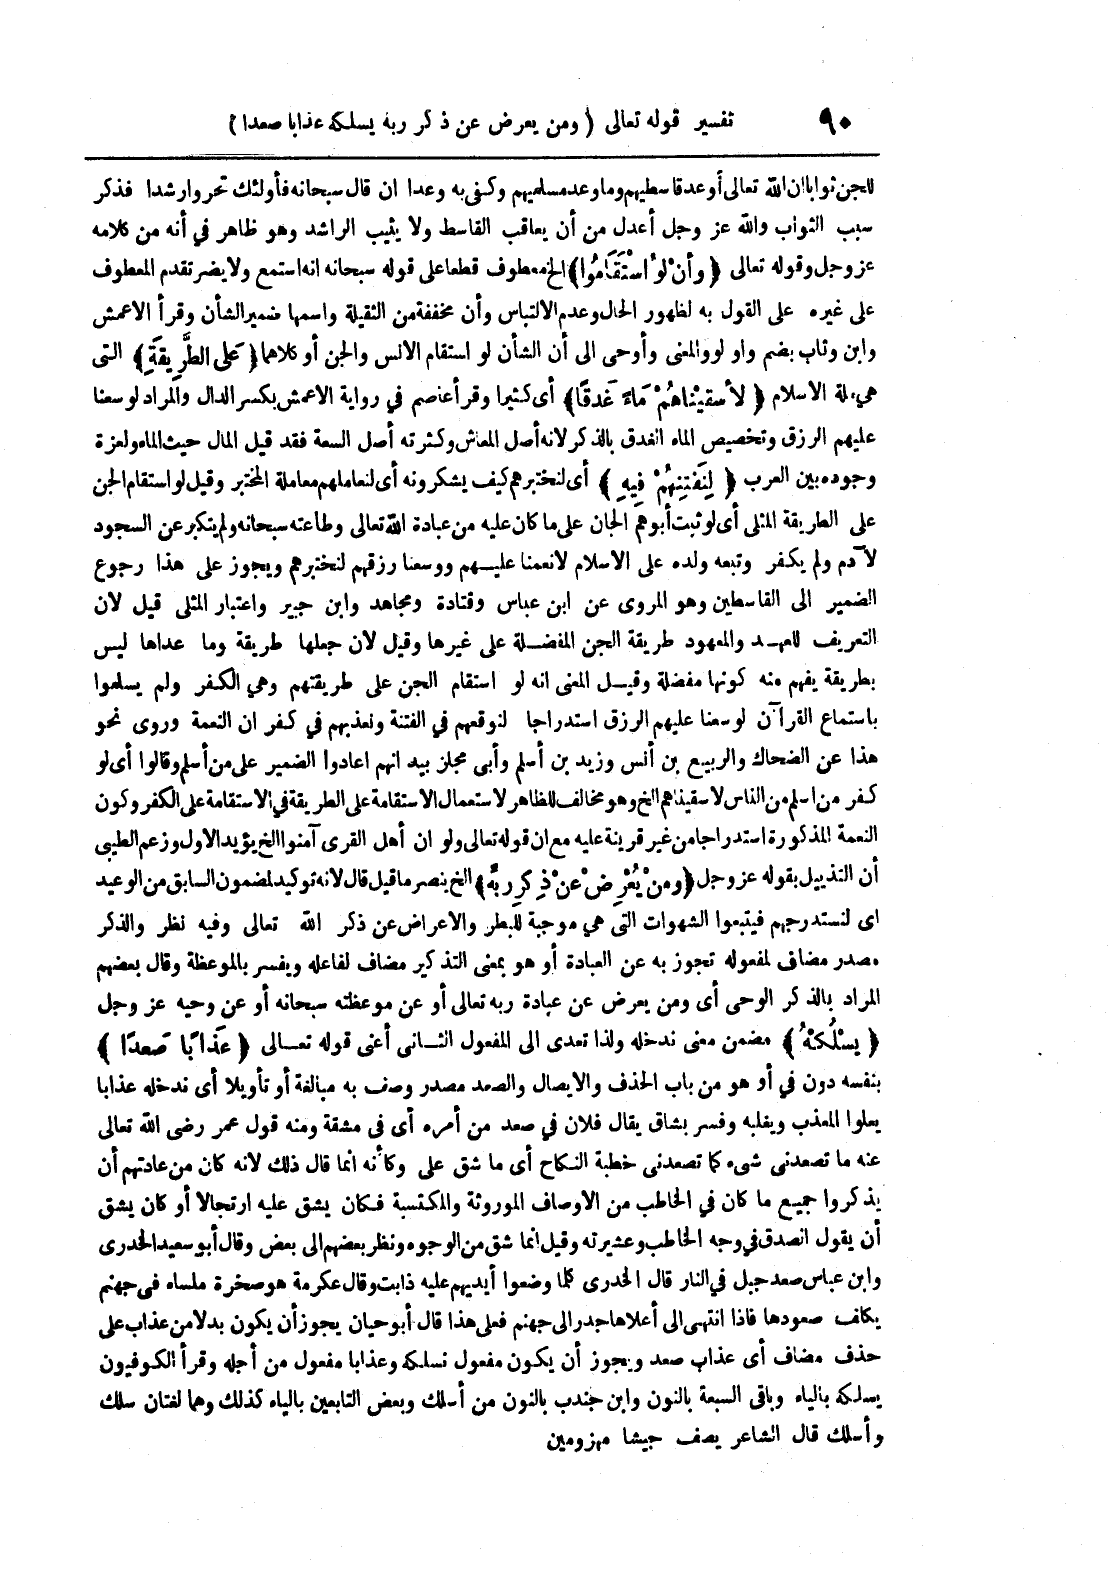 ٩٠ تفسير قوله تعالى ( ومن يعرض عن ذكر ربه يسلكه عذابا صعدا )
للجن ثوابا ان الله تعالى أوعد قاسطيهم وما وعد مسلميهم وكفى به وعدا ان قال سبحانه فأولئك تحروا رشدا فذكر
سبب الثواب والله عز وجل أعدل من أن يعاقب القاسط ولا يثيب الراشد وهو ظاهر في أنه من كلامه
عز وجل وقوله تعالى ﴿ وأنْ لَوُ اسْتَقَامُوا ﴾ الخ معطوف قطعا على قوله سبحانه انه استمع ولا يضر تقدم المعطوف
على غيره على القول به لظهور الحال وعدم الالتباس وأن مخففة من الثقيلة واسمها ضمير الشأن وقرأ الاعمش
وابن وثاب بضم واو لو والمعنى وأوحى الى أن الشأن لو استقام الانس والجن أو كلاهما ﴿ عَلى الطَّرِيقَةِ ﴾ التى
هي ملة الاسلام ﴿ لأسقيْناهُمْ مَاءً غَدقًا ﴾ أى كثيرا وقرأ عاصم في رواية الاعمش بكسر الدال والمراد لوسعنا
عليهم الرزق وتخصيص الماء الغدق بالذكر لانه أصل المعاش وكثرته أصل السعة فقد قيل المال حيث الماء ولعزة
وجوده بين العرب ﴿ لِنَفتِنهُمْ فِيهِ ﴾ أى لنختبرهم كيف يشكرونه أى لنعاملهم معاملة المختبر وقيل لو استقام الجن
على الطريقة المثلى أى لو ثبت أبوهم الجان على ما كان عليه من عبادة الله تعالى وطاعته سبحانه ولم يتكبر عن السجود
لآدم ولم يكفر وتبعه ولده على الاسلام لانعمنا عليهم ووسعنا رزقهم لنختبرهم ويجوز على هذا رجوع
الضمير الى القاسطين وهو المروى عن ابن عباس وقتادة ومجاهد وابن جبير واعتبار المثلى قيل لان
التعريف للعهد والمعهود طريقة الجن المفضلة على غيرها وقيل لان جعلها طريقة وما عداها ليس
بطريقة يفهم منه كونها مفضلة وقيل المعنى انه لو استقام الجن على طريقتهم وهي الكفر ولم يسلموا
باستماع القرآن لوسعنا عليهم الرزق استدراجا لنوقعهم في الفتنة ونعذبهم في كفر ان النعمة وروى نحو
هذا عن الضحاك والربيع بن أنس وزيد بن أسلم وأبى مجلز بيد انهم اعادوا الضمير على من أسلم وقالوا أى لو
كفر من اسلم من الناس لاسقيناهم الخ وهو مخالف للظاهر لاستعمال الاستقامة على الطريقة في الاستقامة على الكفر وكون
النعمة المذكورة استدراجا من غير قرينة عليه مع ان قوله تعالى ولو ان أهل القرى آمنوا الخ يؤيد الاول وزعم الطيبى
أن التذييل بقوله عز وجل ﴿ ومنْ يُعْرِضْ عنْ ذِكرِ ربِّهِ ﴾ الخ ينصر ما قيل قال لانه توكيد لمضمون السابق من الوعيد
اى لنستدرجهم فيتبعوا الشهوات التى هي موجبة للبطر والاعراض عن ذكر الله تعالى وفيه نظر والذكر
مصدر مضاف لمفعوله تجوز به عن العبادة أو هو بمعنى التذكير مضاف لفاعله ويفسر بالموعظة وقال بعضهم
المراد بالذكر الوحى أى ومن يعرض عن عبادة ربه تعالى أو عن موعظته سبحانه أو عن وحيه عز وجل
﴿ يسْلُكْهُ ﴾ مضمن معنى ندخله ولذا تعدى الى المفعول الثانى أعنى قوله تعالى ﴿ عَذَابًا صَعدًا ﴾
بنفسه دون في أو هو من باب الحذف والايصال والصعد مصدر وصف به مبالغة أو تأويلا أى ندخله عذابا
يعلوا المعذب ويغلبه وفسر بشاق يقال فلان في صعد من أمره أى فى مشقة ومنه قول عمر رضى الله تعالى
عنه ما تصعدنى شىء كما تصعدنى خطبة النكاح أى ما شق على وكأنه انما قال ذلك لانه كان من عادتهم أن
يذكروا جميع ما كان في الخاطب من الاوصاف الموروثة والمكتسبة فكان يشق عليه ارتجالا أو كان يشق
أن يقول الصدق في وجه الخاطب وعشيرته وقيل انما شق من الوجوه ونظر بعضهم الى بعض وقال أبو سعيد الخدرى
وابن عباس صعد جبل في النار قال الخدرى كلما وضعوا أيديهم عليه ذابت وقال عكرمة هو صخرة ملساء فى جهنم
يكلف صعودها فاذا انتهى الى أعلاها حدر الى جهنم فعلى هذا قال أبو حيان يجوز أن يكون بدلا من عذاب على
حذف مضاف أى عذاب صعد ويجوز أن يكون مفعول نسلكه وعذابا مفعول من أجله وقرأ الكوفيون
يسلكه بالياء وباقى السبعة بالنون وابن جندب بالنون من أسلك وبعض التابعين بالياء كذلك وهما لغتان سلك
وأسلك قال الشاعر يصف جيشا مهزومين